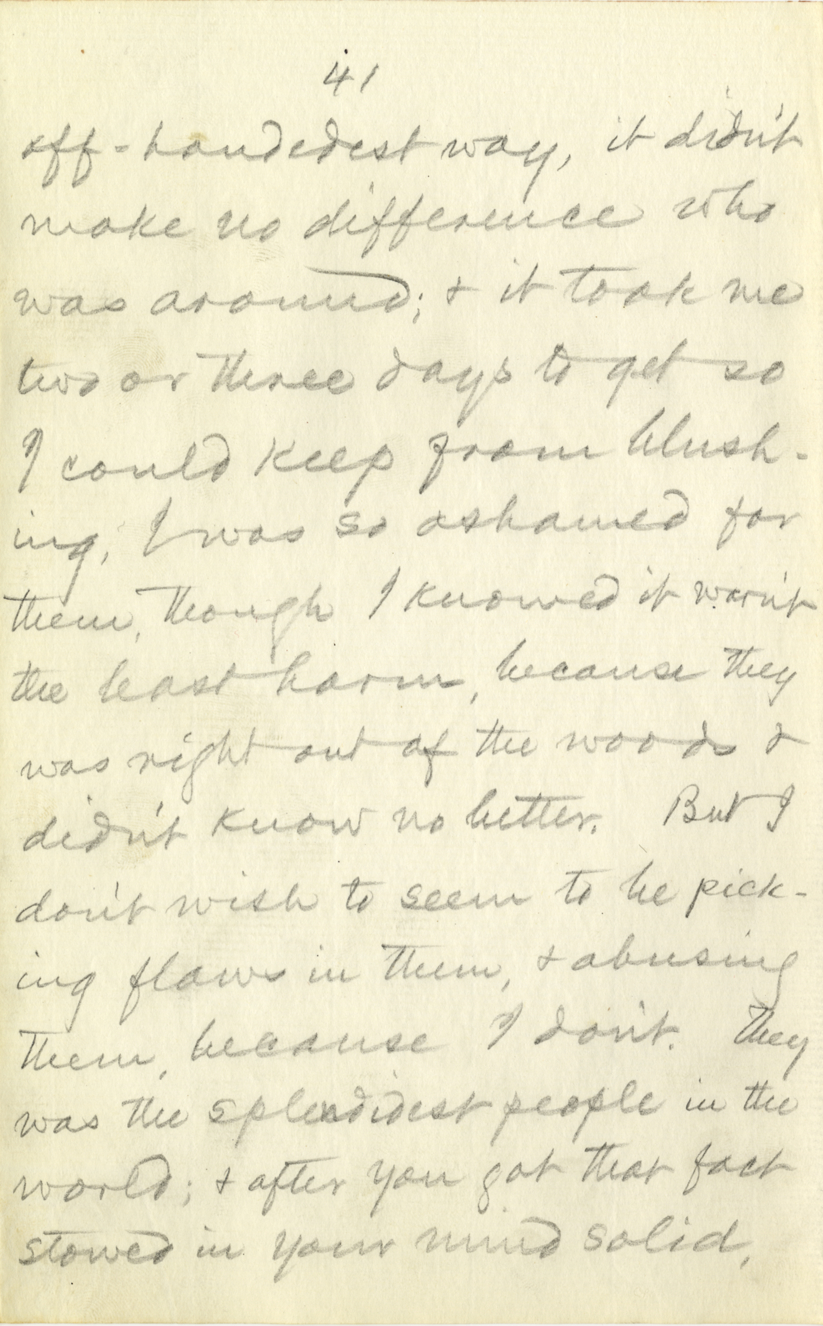 41
off-handedest way, it didn't
make no difference who
was around; & it took me
two or three days to get so
I could keep from blush-
ing, I was so ashamed for
them, though I knowed it warn't
the least harm, because they
was right out of the woods &
didn't know no better. But I
don't wish to seem to be pick-
ing flaws in them, & abusing
them, because I don't. They
was the splendidest people in the
world; & after you got that fact
stowed in your mind solid,